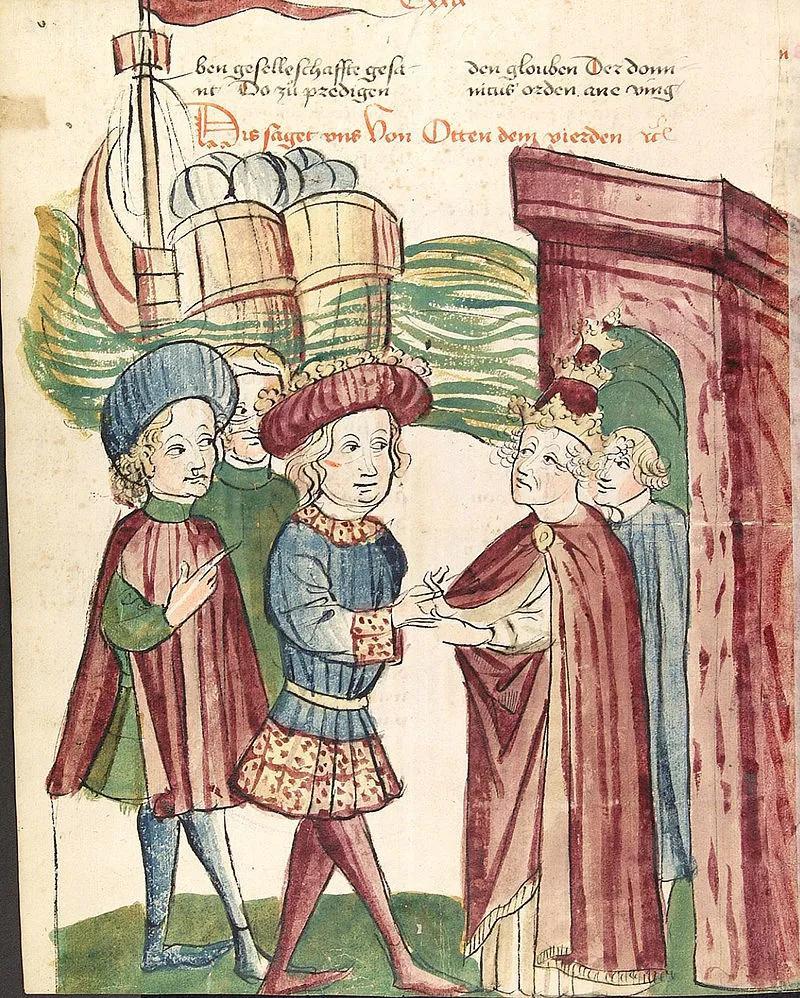 Cxxx
ben geselleschaffte gesa-
nt Do zü predigen
den glouben Der domi
nicus orden ane ving
Dis saget vns Von Otten dem vierden